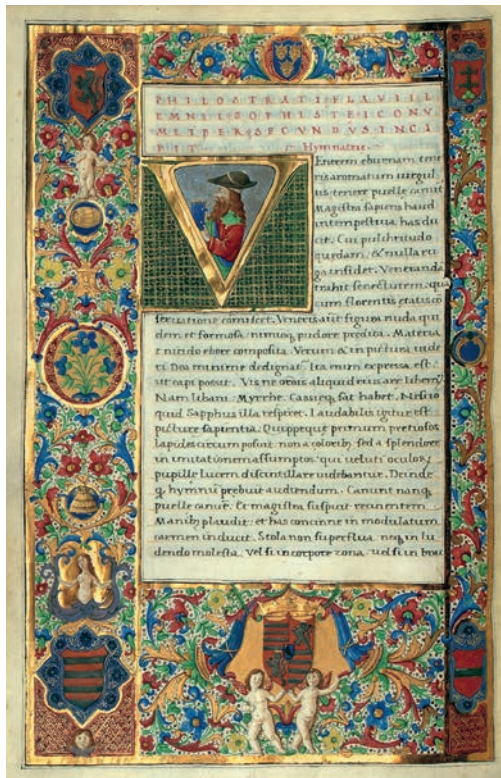 PHILOSTRATI FLAVII L
EMNII SOPHISTE ICONV
M LIBER SECVNDVS INCI
PIT Hymnatrie.
VEnerem eburnam tene
ris aromatum uirgul
tis tenere puelle canut
Magistra sapiens haud
intempestiua has du
cit. Cui pulchritudo
quedam, & nulla ru
ga insidet. Venerandā
trahit senectutem, qua
cum florentis etatis cō
seruatione comiscet. Veneris aūt figura nuda qui
dem et formosa numinq pudore predita. Materia
ebore composita. Verum & in pictura uide
ri Dea minime dedignat. Ita enim expressa est
ut capi possit. Vis ne oronis aliquid eius are libem9
Nam libani. Myrrhe. Cassieq sat habet. Nescio
quid Sapphus illa respiret. Laudabilis igitur est
picture sapientia. Quippeque primum pretiosos
lapides circum posuit non a colorib3 sed a splendore
in imitationem assumptos. qui ueluti oculos,
pupille lucem discintillare uidebantur. Deinde
q hymnū prebuit audiendum. Canunt nanq
puelle canūt. Et magistra suspicit recinentem
Manib3 plaudit. et has concinne in modulatum
carmen inducit. Stola non superflua neq in lu
dendo molesta. Vel si in corpore zona. uel si in brac